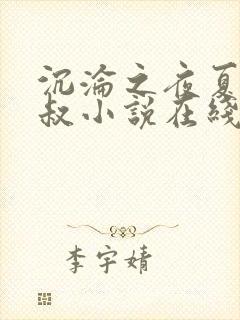 沉淪之夜夏
叔小說在綫
李宇婧